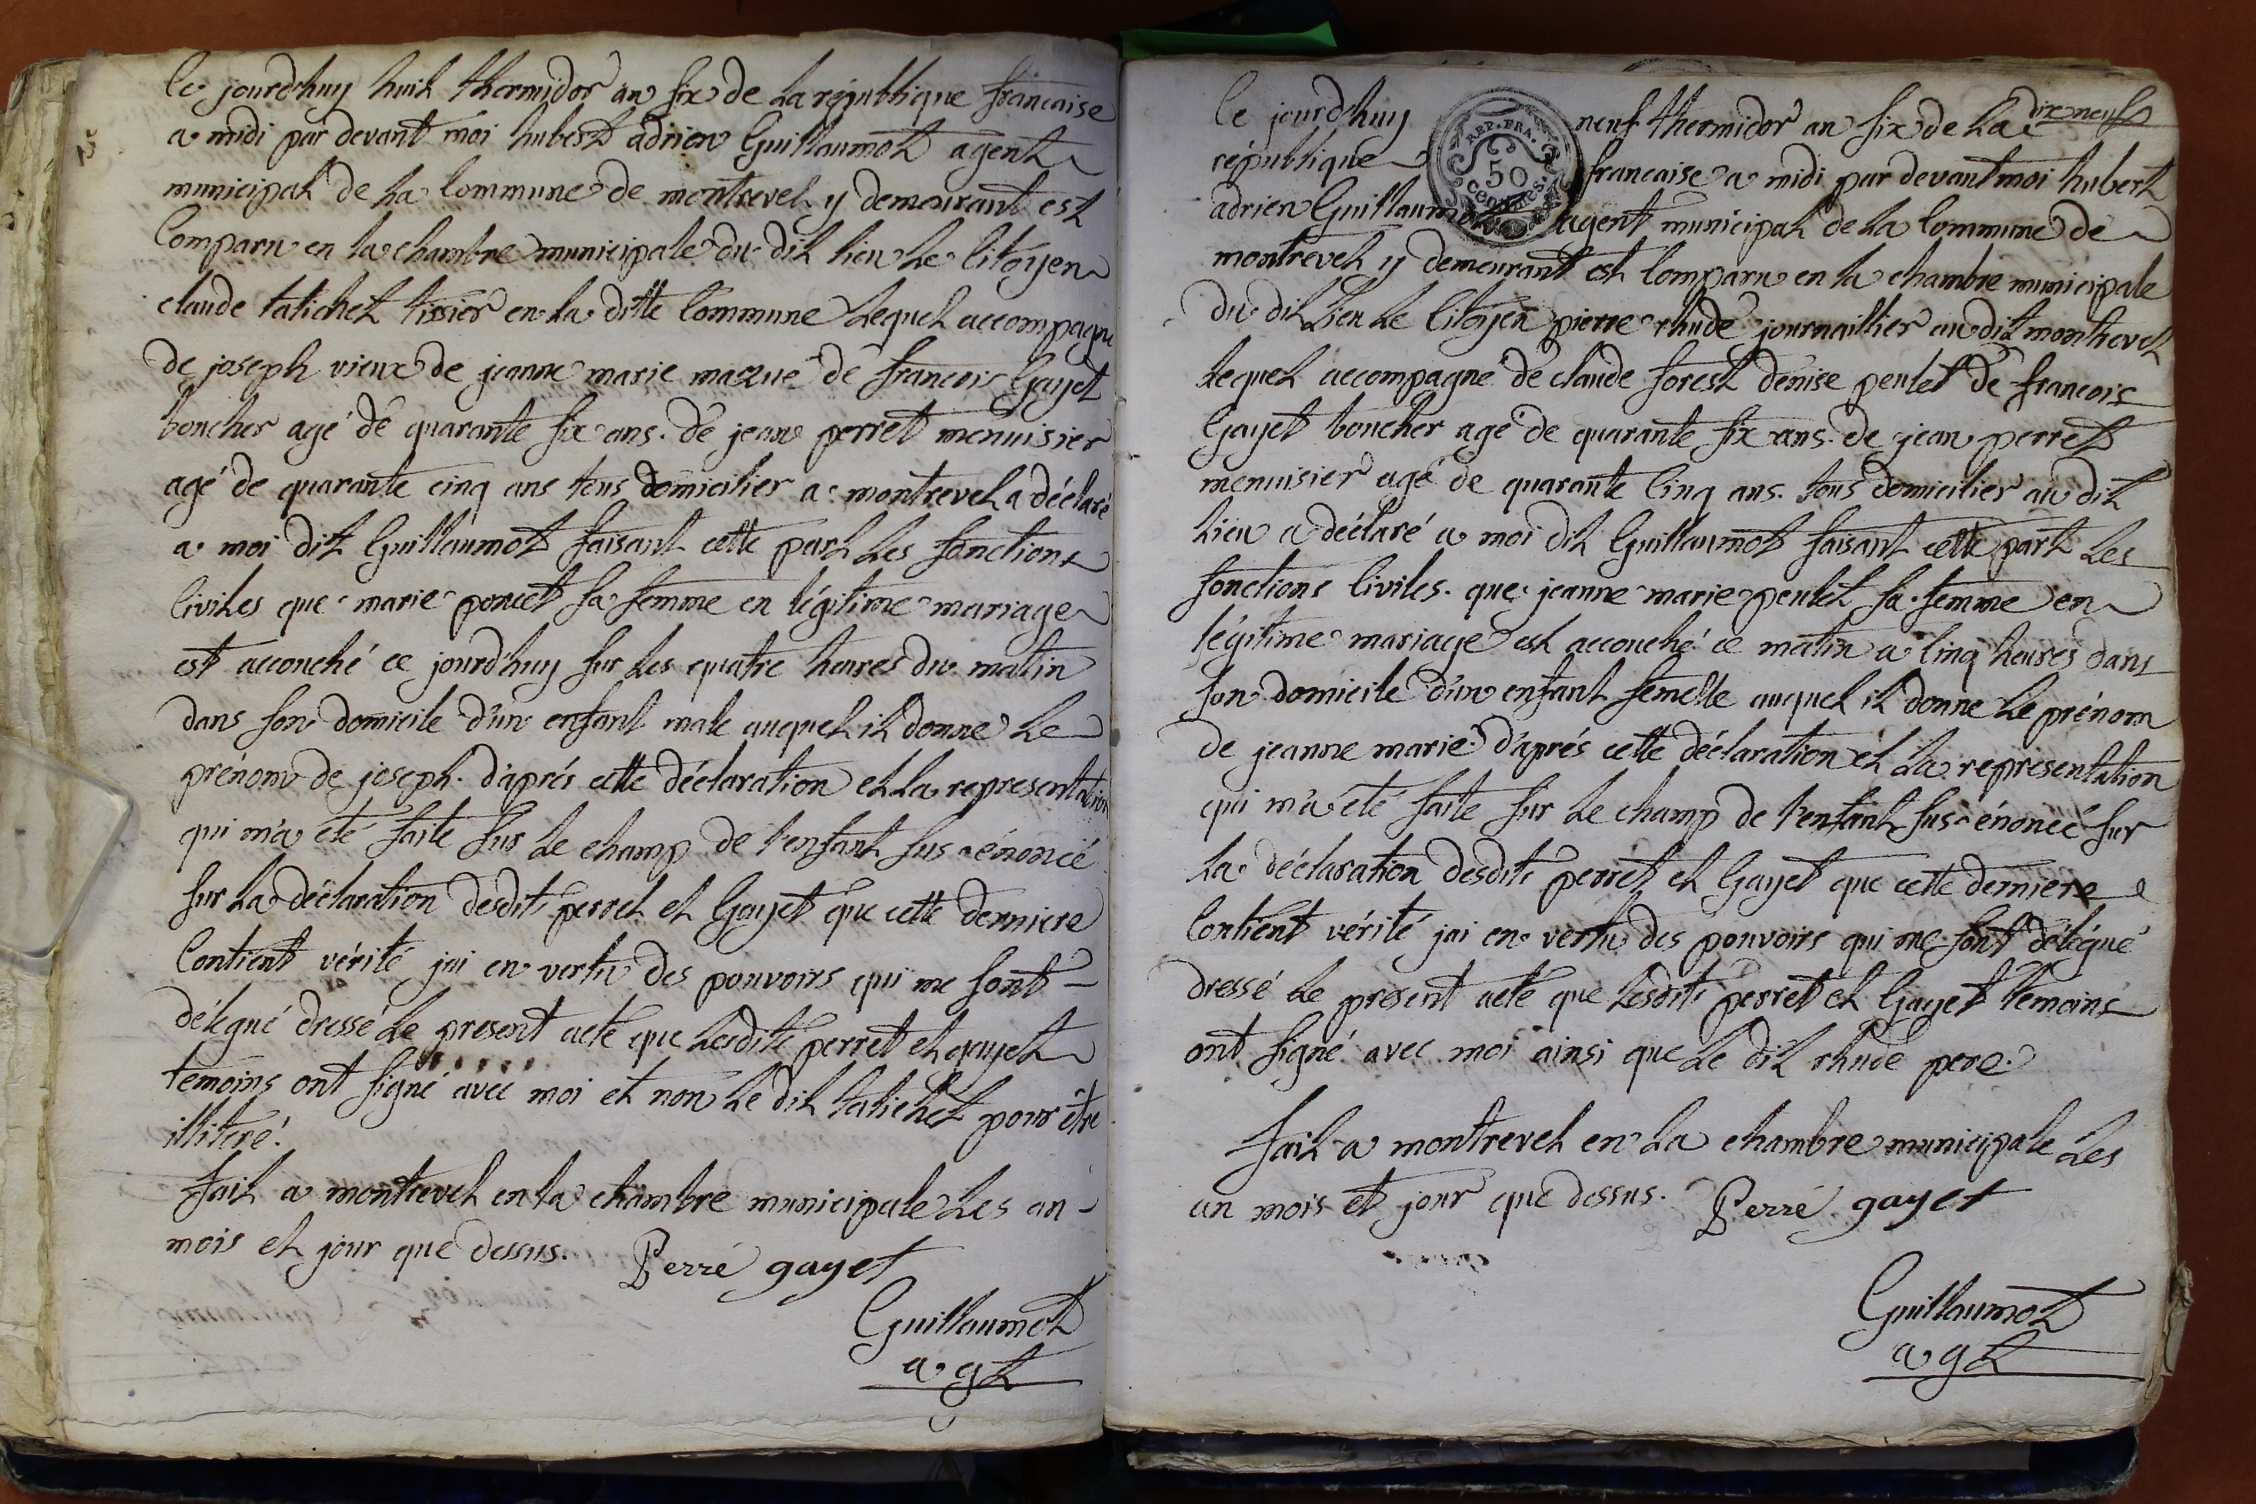 Ce jourd'huy huit thermidor an six de la république francaise
a midi par devant moi hubert adrien Guillaumot agent
municipal de la Commune de montrevel y demeurant est
Comparu en la chambre municipale du dit lieu le Citoyen
claude tatichet tissier en la ditte Commune lequel accompagné
de joseph vieux de jeanne marie mazue de francois Gayet
boucher agé de quarante six ans. de jean perret menuisier
agé de quarante cinq ans tous domicilier a montrevel a déclaré
a moi dit Guillaumot faisant cette part les fonctions
Civiles que marie poncet sa femme en légitime mariage
est accouché ce jourd'huy sur les quatre heures du matin
dans son domicile d'un enfant male auquel il donne le
prénom de joseph. d'aprés cette déclaration et la representation
qui m'a été faite sur le champ de l'enfant sus énoncé
sur la déclaration desdits perret et Gayet que cette derniere
Contient vérité jai en vertu des pouvoirs qui me sont
délegué dressé le present acte que lesdits perret et gayet
temoins ont signé avec moi et non le dit tatichet pour être
illiteré.
fait a montrevel en la chambre municipale les an
mois et jour que dessus. Perré gayet
Guillaumot
agt
dix neuf
Ce jourd'huy neuf thermidor an six de la
REP. FRA.
50
centimes.
république francaise a midi par devant moi hubert
adrien Guillaumot agent municipal de la Commune de
montrevel y demeurant est Comparu en la chambre municipale
du dit Lieu le Citoyen pierre rhude journaillier au dit montrevel
lequel accompagné de claude forest denise peulet de francois
Gayet boucher agé de quarante six ans. de jean perret
menuisier agé de quarante Cinq ans. tous domicilier au dit
lieu a déclaré a moi dit Guillaumot faisant cette part les
fonctions Civiles. que jeanne marie peulet sa femme en
légitime mariage est accouché ce matin a Cinq heures dans
son domicile d'un enfant femelle auquel il donne le prénom
de jeanne marie. d'aprés cette déclaration et la representation
qui m'a été faite sur le champ de l'enfant sus énoncé sur
la déclaration desdits perret et Gayet que cette derniere
Contient vérité jai en vertu des pouvoirs qui me sont délégué
dressé le présent acte que lesdits perret et Gayet temoins
ont signé avec moi ainsi que le dit rhude pere.
fait a montrevel en la chambre municipale les
an mois et jour que dessus. Perré gayet
Guillaumot
agt